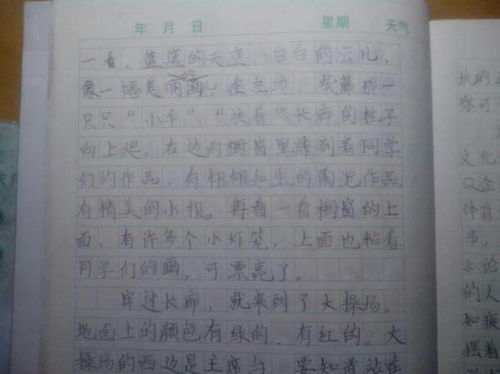 年 月 日 星期 天气
一看，蓝蓝的天空、白白的云儿，
像一幅美丽画，走左边，紫藤那一
只只“小手”，“扶着”长廊的柱子
向上爬，右边的橱窗里陈列着同学
们的作品，有栩栩如生的陶泥作品，
有精美的小报。再看一看橱窗的上
面，有许多个小灯笼，上面也粘着
同学们的画，可漂亮了。
穿过长廊，就来到了大操场。
地面上的颜色有绿的，有红的。大
操场的西边是主席台，要知道站在
文化
企
体育
造，
论
的人
知疲
摇着